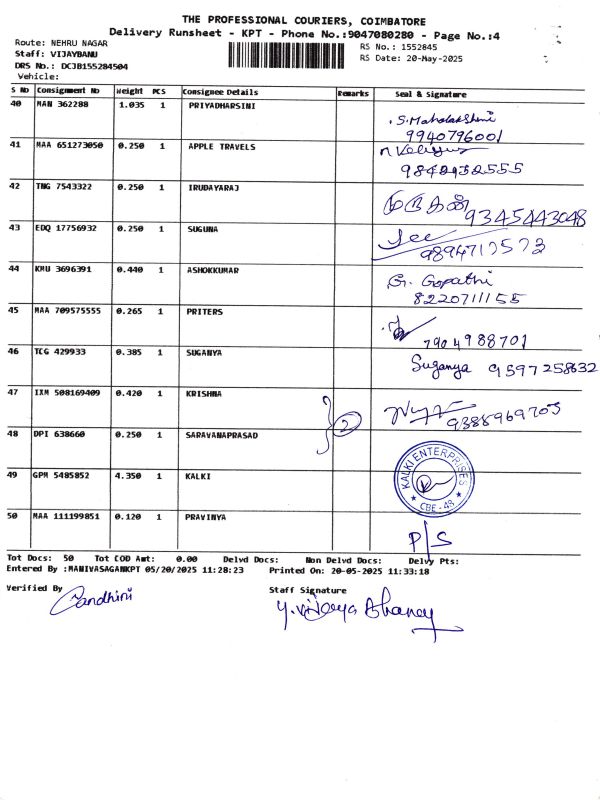 THE PROFESSIONAL COURIERS, COIMBATORE
Delivery Runsheet - KPT - Phone No.:9047080280 - Page No.:4
Route: NEHRU NAGAR
RS No.: 1552845
Staff: VIJAYBANU
RS Date: 20-May-2025
DRS No.: DCJB155284504
Vehicle:
S No Consignment No Weight PCS Consignee Details Remarks Seal & Signature
40 MAN 362288 1.035 1 PRIYADHARSINI
S. Mahalakshmi
9940796001
41 MAA 651273050 0.250 1 APPLE TRAVELS
9842932555
42 TNG 7543322 0.250 1 IRUDAYARAJ
முருகன் 9345443048
43 EDQ 17756932 0.250 1 SUGUNA
9894717573
44 KMU 3696391 0.440 1 ASHOKKUMAR
G. Gopathi
8220711155
45 MAA 709575555 0.265 1 PRITERS
7904988701
46 TCG 429933 0.385 1 SUGANYA
Suganya 9597258632
47 IXM 508169409 0.420 1 KRISHNA
2
9385969705
48 DPI 638660 0.250 1 SARAVANAPRASAD
49 GPM 5485852 4.350 1 KALKI
KALKI ENTERPRISES
CBE - 48
50 MAA 111199851 0.120 1 PRAVINYA
P/S
Tot Docs: 50 Tot COD Amt: 0.00 Delvd Docs: Non Delvd Docs: Delvy Pts:
Entered By :MANIVASAGANKPT 05/20/2025 11:28:23 Printed On: 20-05-2025 11:33:18
Verified By Staff Signature
Gandhini
Y. Vijaya Bhanay